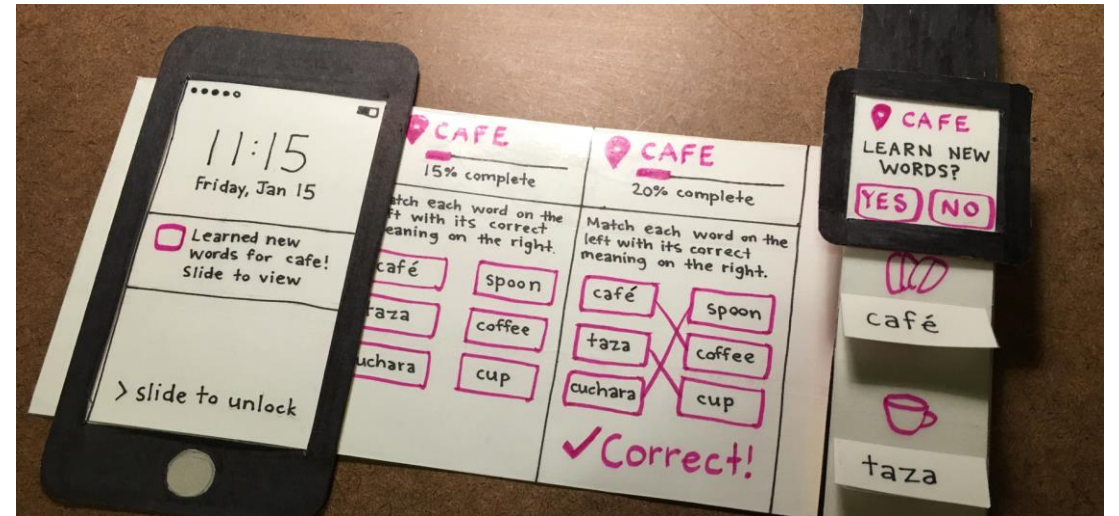 11:15
Friday, Jan 15
Learned new
words for cafe!
Slide to view
> slide to unlock
CAFE
15% complete
each word on the
with its correct
meaning on the right.
café
spoon
taza
coffee
cuchara
cup
CAFE
20% complete
Match each word on the
left with its correct
meaning on the right.
café
spoon
taza
coffee
cuchara
cup
✓Correct!
CAFE
LEARN NEW
WORDS?
YES
NO
café
taza